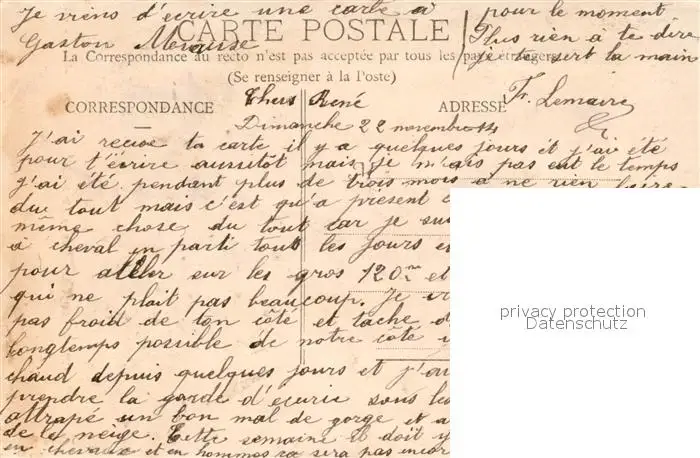 Je viens d'ecrire une carte a
Gaston
pour le moment
Plus rien à te dire
je te sert la main
F. Lemaire
CARTE POSTALE
La Correspondance au recto n'est pas acceptée par tous les pays étrangers
(Se renseigner à la Poste)
CORRESPONDANCE
ADRESSE
Chers René
Dimanche 22 novembre 14
J'ai recue ta carte il y a quelques jours et j'ai été
pour t'écrire aussitôt mais je m'ais pas eut le temps
j'ai été pendant plus de trois mois a ne rien faire
du tout mais c'est qu'a present
même chose du tout car je
a cheval en parti tout les jours
pour aller sur les gros 120 et
qui ne plait pas beaucoup. Je
pas froid de ton côté et tache
longtemps possible de notre côté
chaud depuis quelques jours et
prendre la garde d'écurie sous
attrapé un bon mal de gorge et
de la neige. Cette semaine il doit y
en chevaux et en hommes sa sera pas encor
privacy protection
Datenschutz